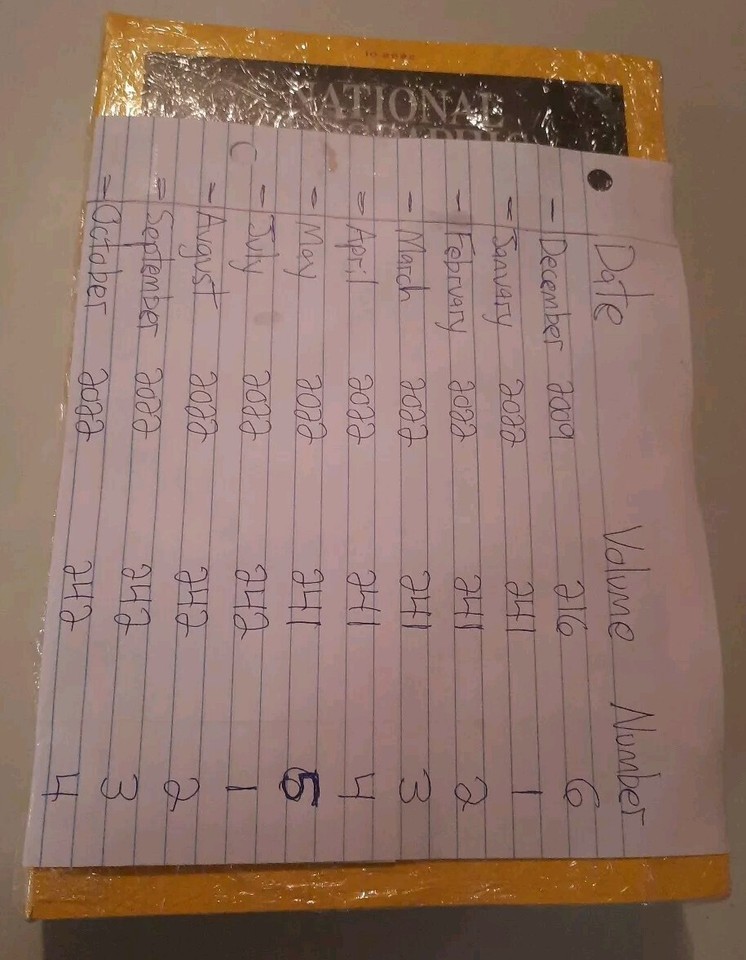 NATIONAL
Date Volume Number
- December 2009 216 6
- January 2022 241 1
- February 2022 241 2
- March 2022 241 3
- April 2022 241 4
- May 2022 241 5
- July 2022 242 1
- August 2022 242 2
- September 2022 242 3
- October 2022 242 4